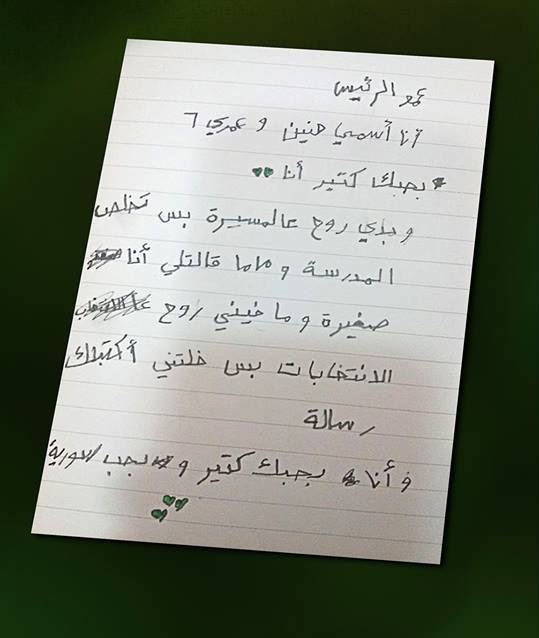 عمو الرئيس
أنا أسمي حنين و عمري ٦
بحبك كتير أنا
و بدي روح عالمسيرة بس تخلص
المدرسة و ماما قالتلي أنا
صغيرة و ما فيني روح
الانتخابات بس خلتني أكتبلك
رسالة
و أنا بحبك كتير و بحب سورية